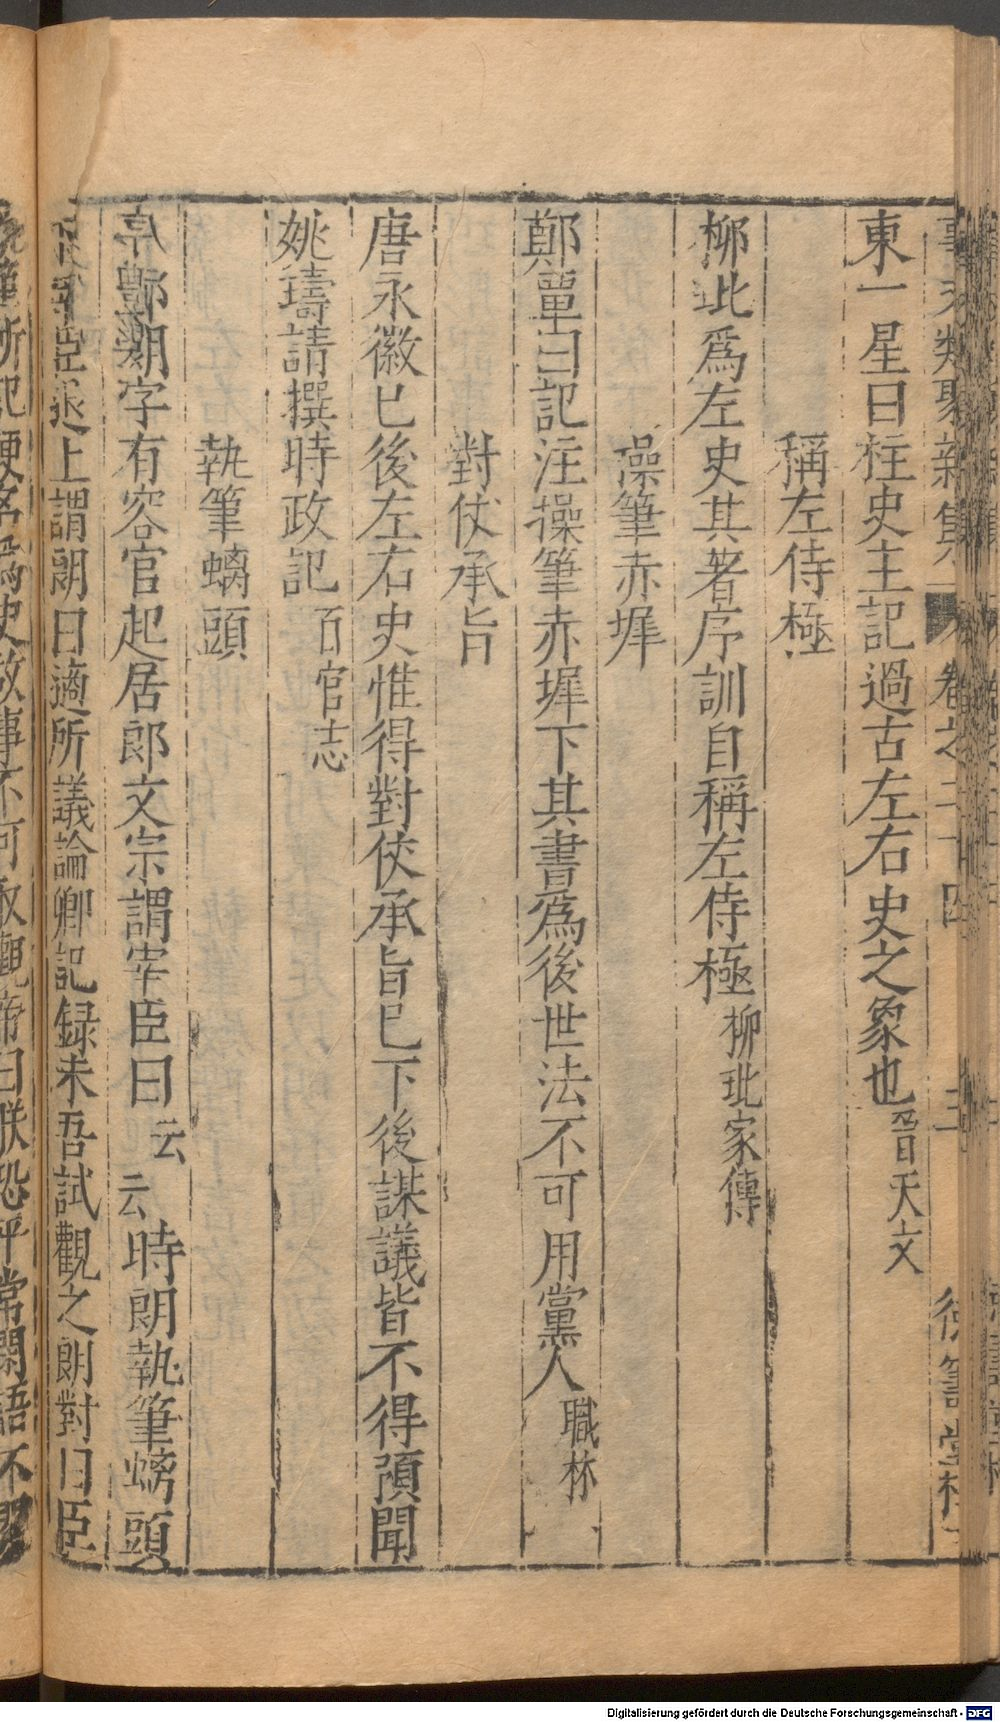 事文類聚新集 卷之二十四 三 德壽堂梓
東一星曰柱史主記過古左右史之象也晉天文
稱左侍極
柳玭爲左史其著序訓自稱左侍極柳玭家傳
操筆赤墀
鄭覃曰記注操筆赤墀下其書爲後世法不可用黨人職林
對仗承旨
唐永徽已後左右史惟得對仗承旨已下後謀議皆不得預聞
姚璹請撰時政記百官志
執筆螭頭
字有容官起居郎文宗謂宰臣曰云云時朗執筆螭頭
宰臣退上謂朗曰適所議論卿記録未吾試觀之朗對曰臣
所記便名爲史故事不可取觀帝曰朕恐平常閑語不
Digitalisierung gefördert durch die Deutsche Forschungsgemeinschaft - DFG